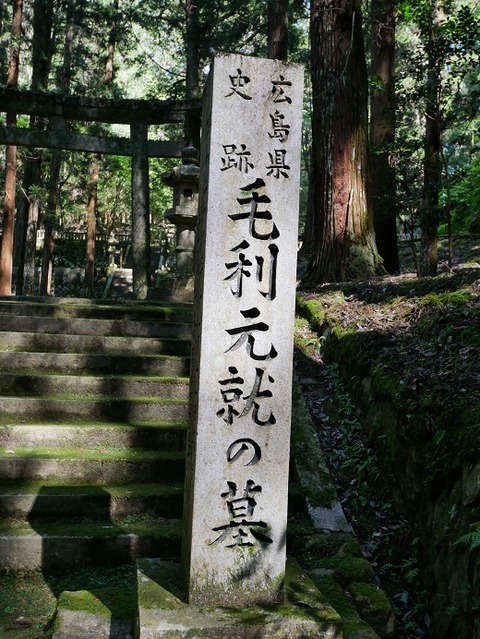 広島県
史跡
毛利元就の墓